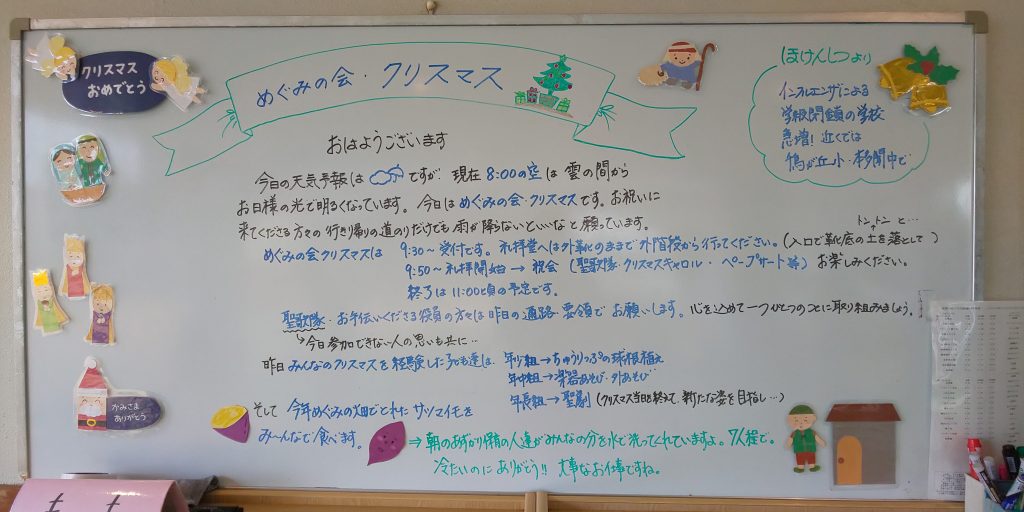 クリスマス
おめでとう
めぐみの会・クリスマス
ほけんしつより
インフルエンザによる
学級閉鎖の学校
急増! 近くでは
鴨が丘小・本多聞中で
おはようございます
今日の天気予報は ですが 現在 8:00の空は 雲の間から
お日様の光で明るくなっています。今日は めぐみの会・クリスマスです。お祝いに
来てくださる方々の 行き帰りの道のりだけでも 雨が降らないといいなと願っています。
トントンと…
めぐみの会クリスマスは 9:30〜 受付です。礼拝堂へは外靴のままで外階段から行ってください。(入口で靴底の土を落として)
9:50〜 礼拝開始 → 祝会 (聖歌隊・クリスマスキャロル・ペープサート等) お楽しみください。
終了は 11:00頃の予定です。
聖歌隊・お手伝いくださる役員の方々は昨日の通路・要領でお願いします。心を込めて一つひとつのことに取り組みましょう。
↳今日参加できない人の思いも共に…
昨日 みんなのクリスマスを経験した子ども達は、年少組→ちゅうりっぷの球根植え
年中組→楽器あそび・外あそび
年長組→聖劇 (クリスマス当日を終えて、新たな姿を目指し…)
かみさま
ありがとう
そして 今年めぐみの畑でとれた サツマイモを
み〜んなで食べます。
⇒ 朝のあずかり保育の人達がみんなの分を水で洗ってくれていますよ。7人程で。
冷たいのに ありがとう!! 大事なお仕事ですね。